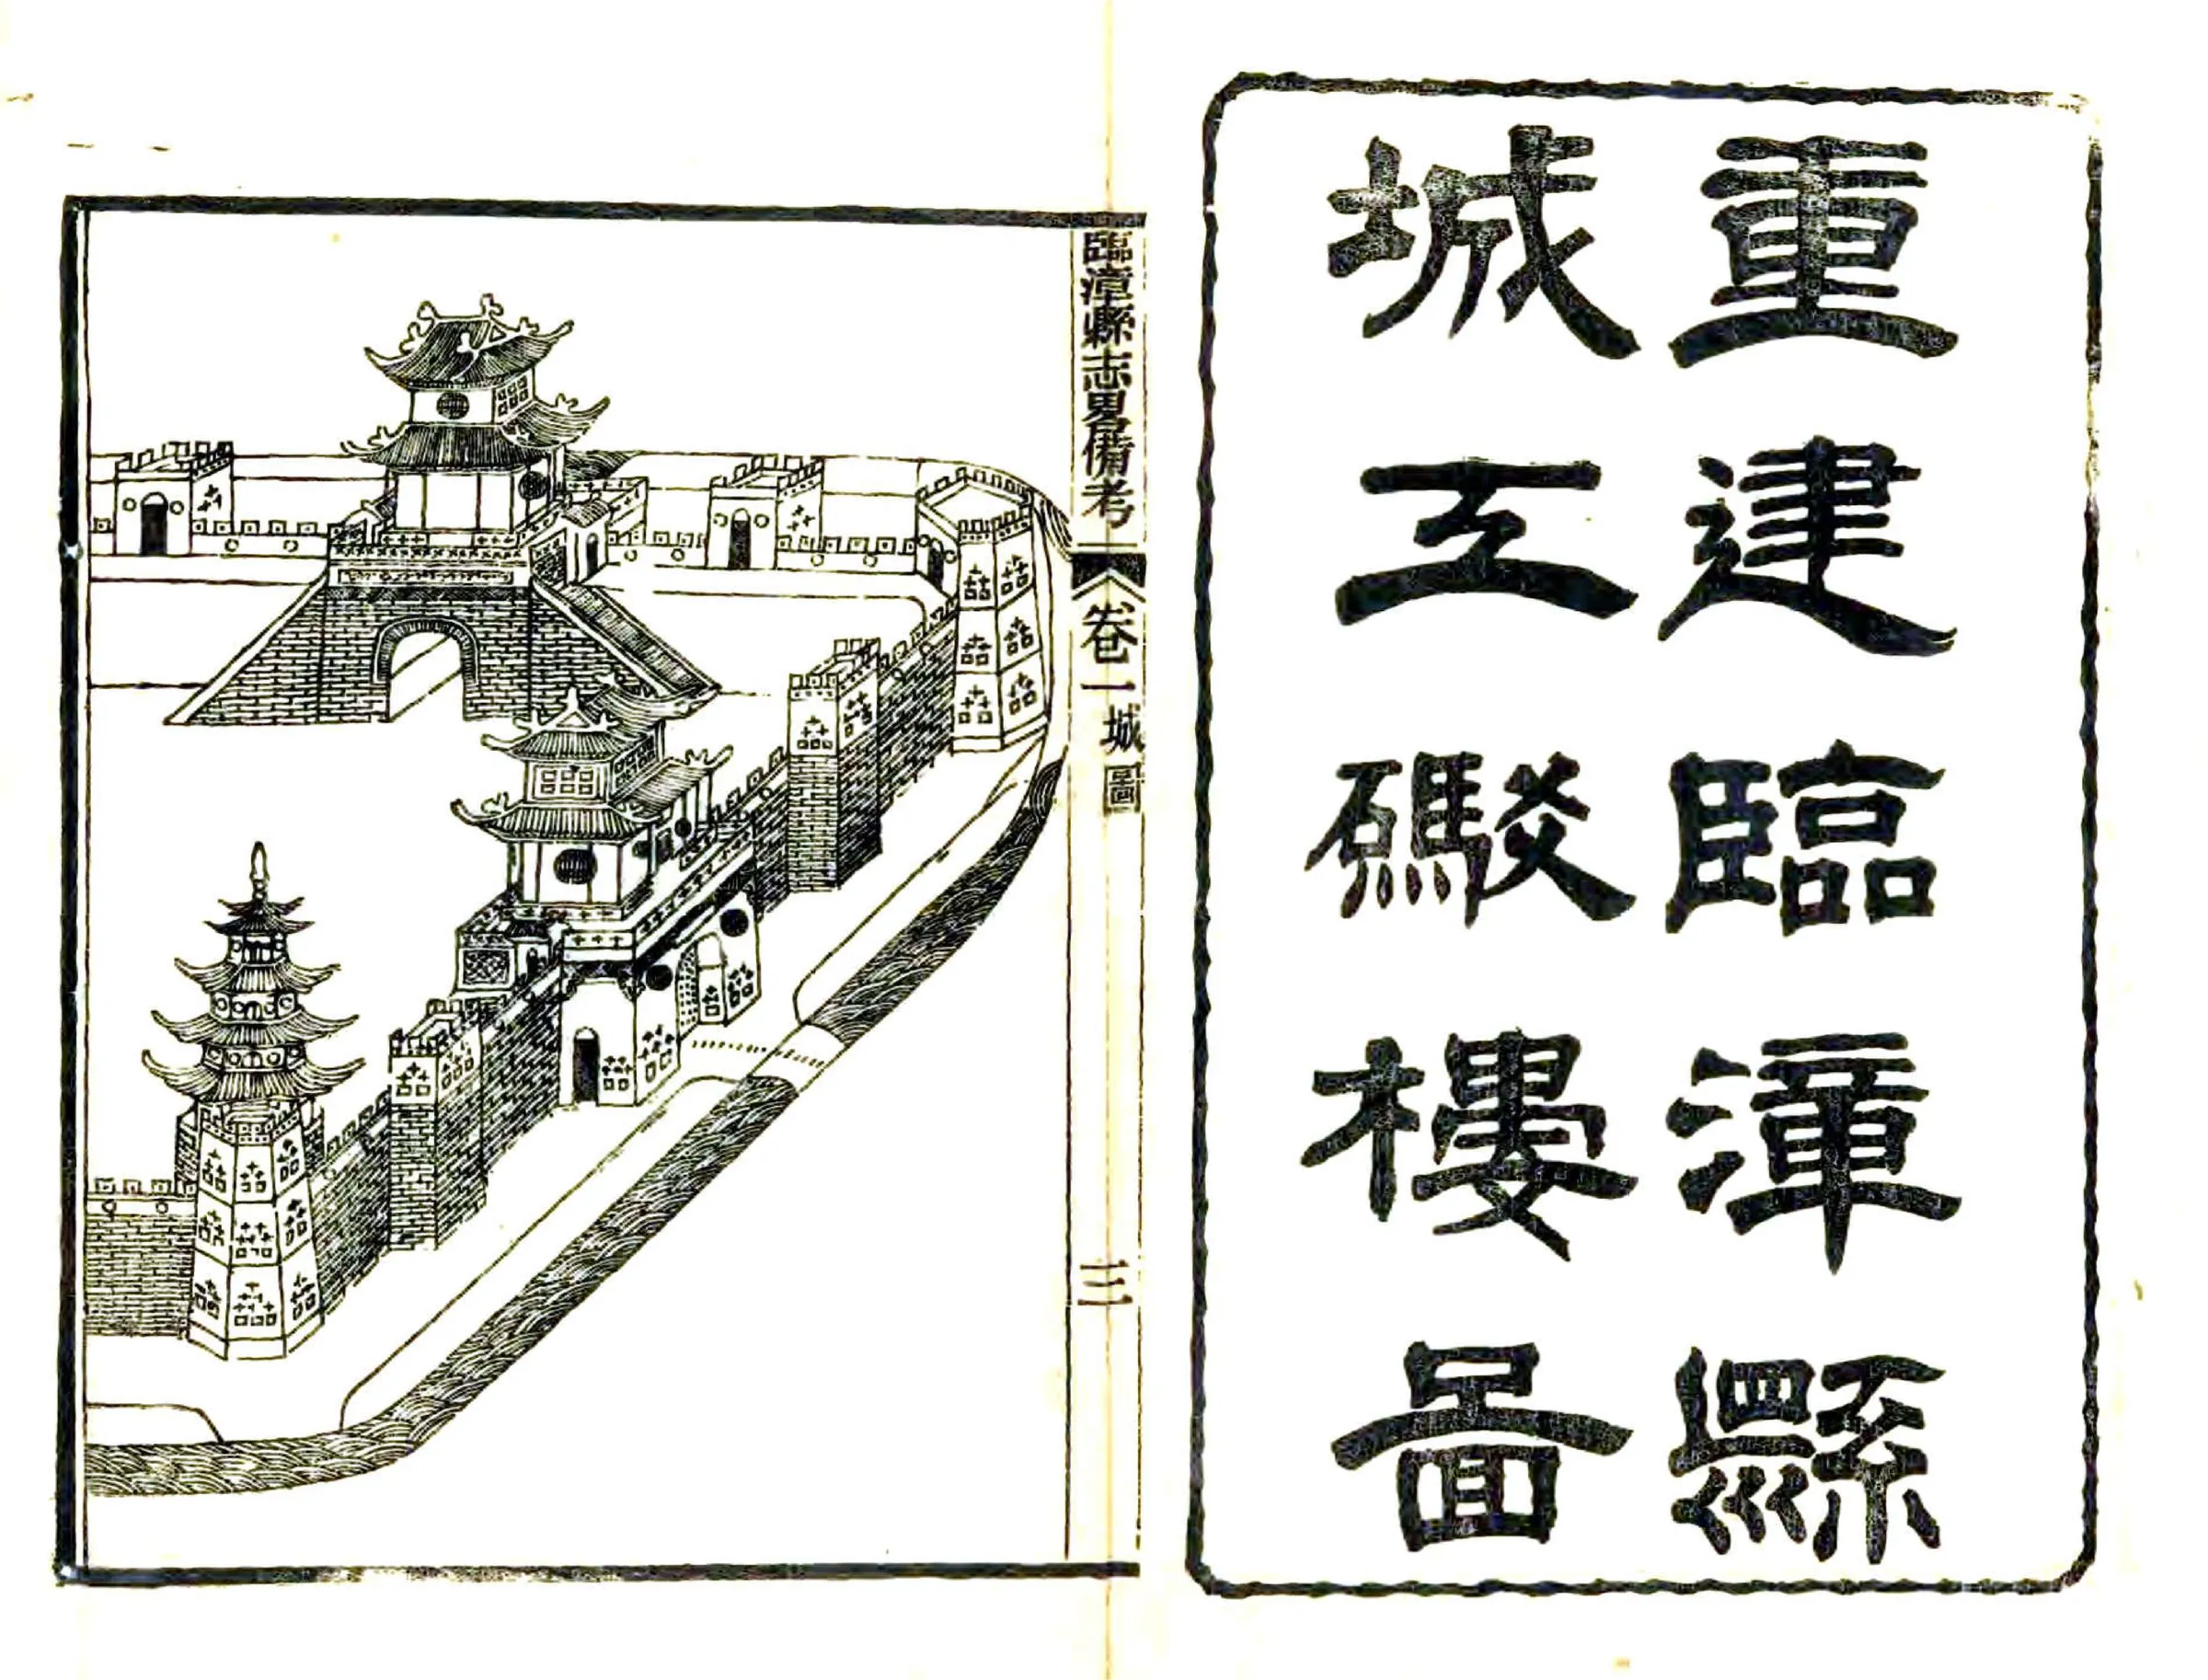 重建臨漳縣
城工礮樓啚
臨漳縣志畧備考
卷一 城圖
三